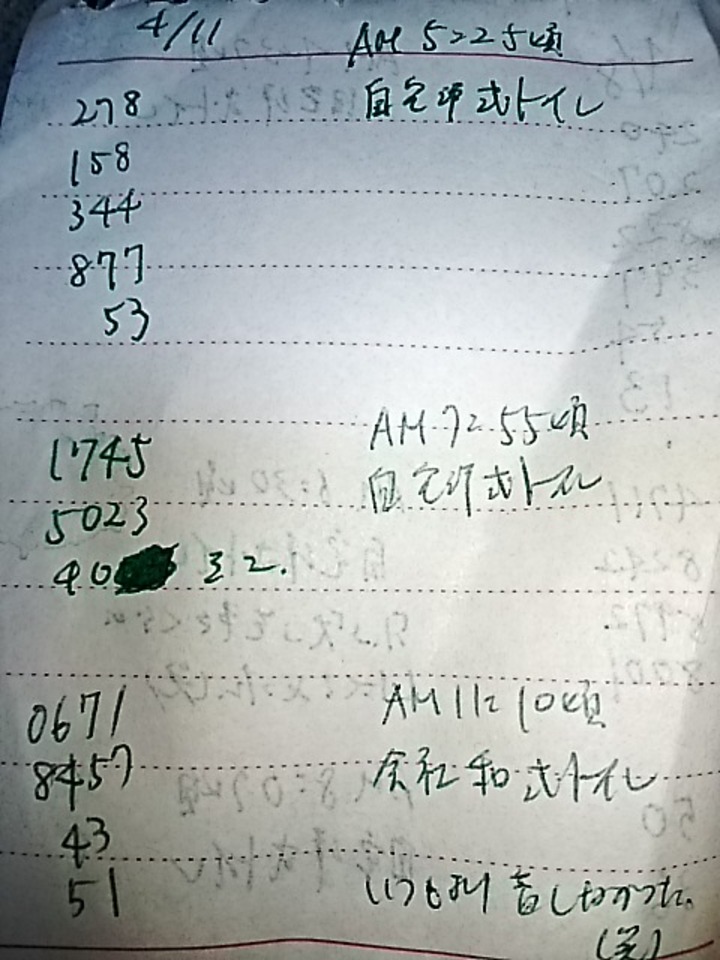 4/11 AM 5:25頃
278 自宅洋式トイレ
158
344
877
53
AM 7:55頃
1745
自宅洋式トイレ
5023
40 ミス.
0671 AM 11:10頃
8457 会社和式トイレ
43
51 いつもより音しなかった.
(笑)